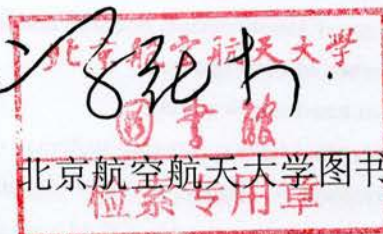 北京航空航天大学
图书馆
北京航空航天大学图书
检索专用章